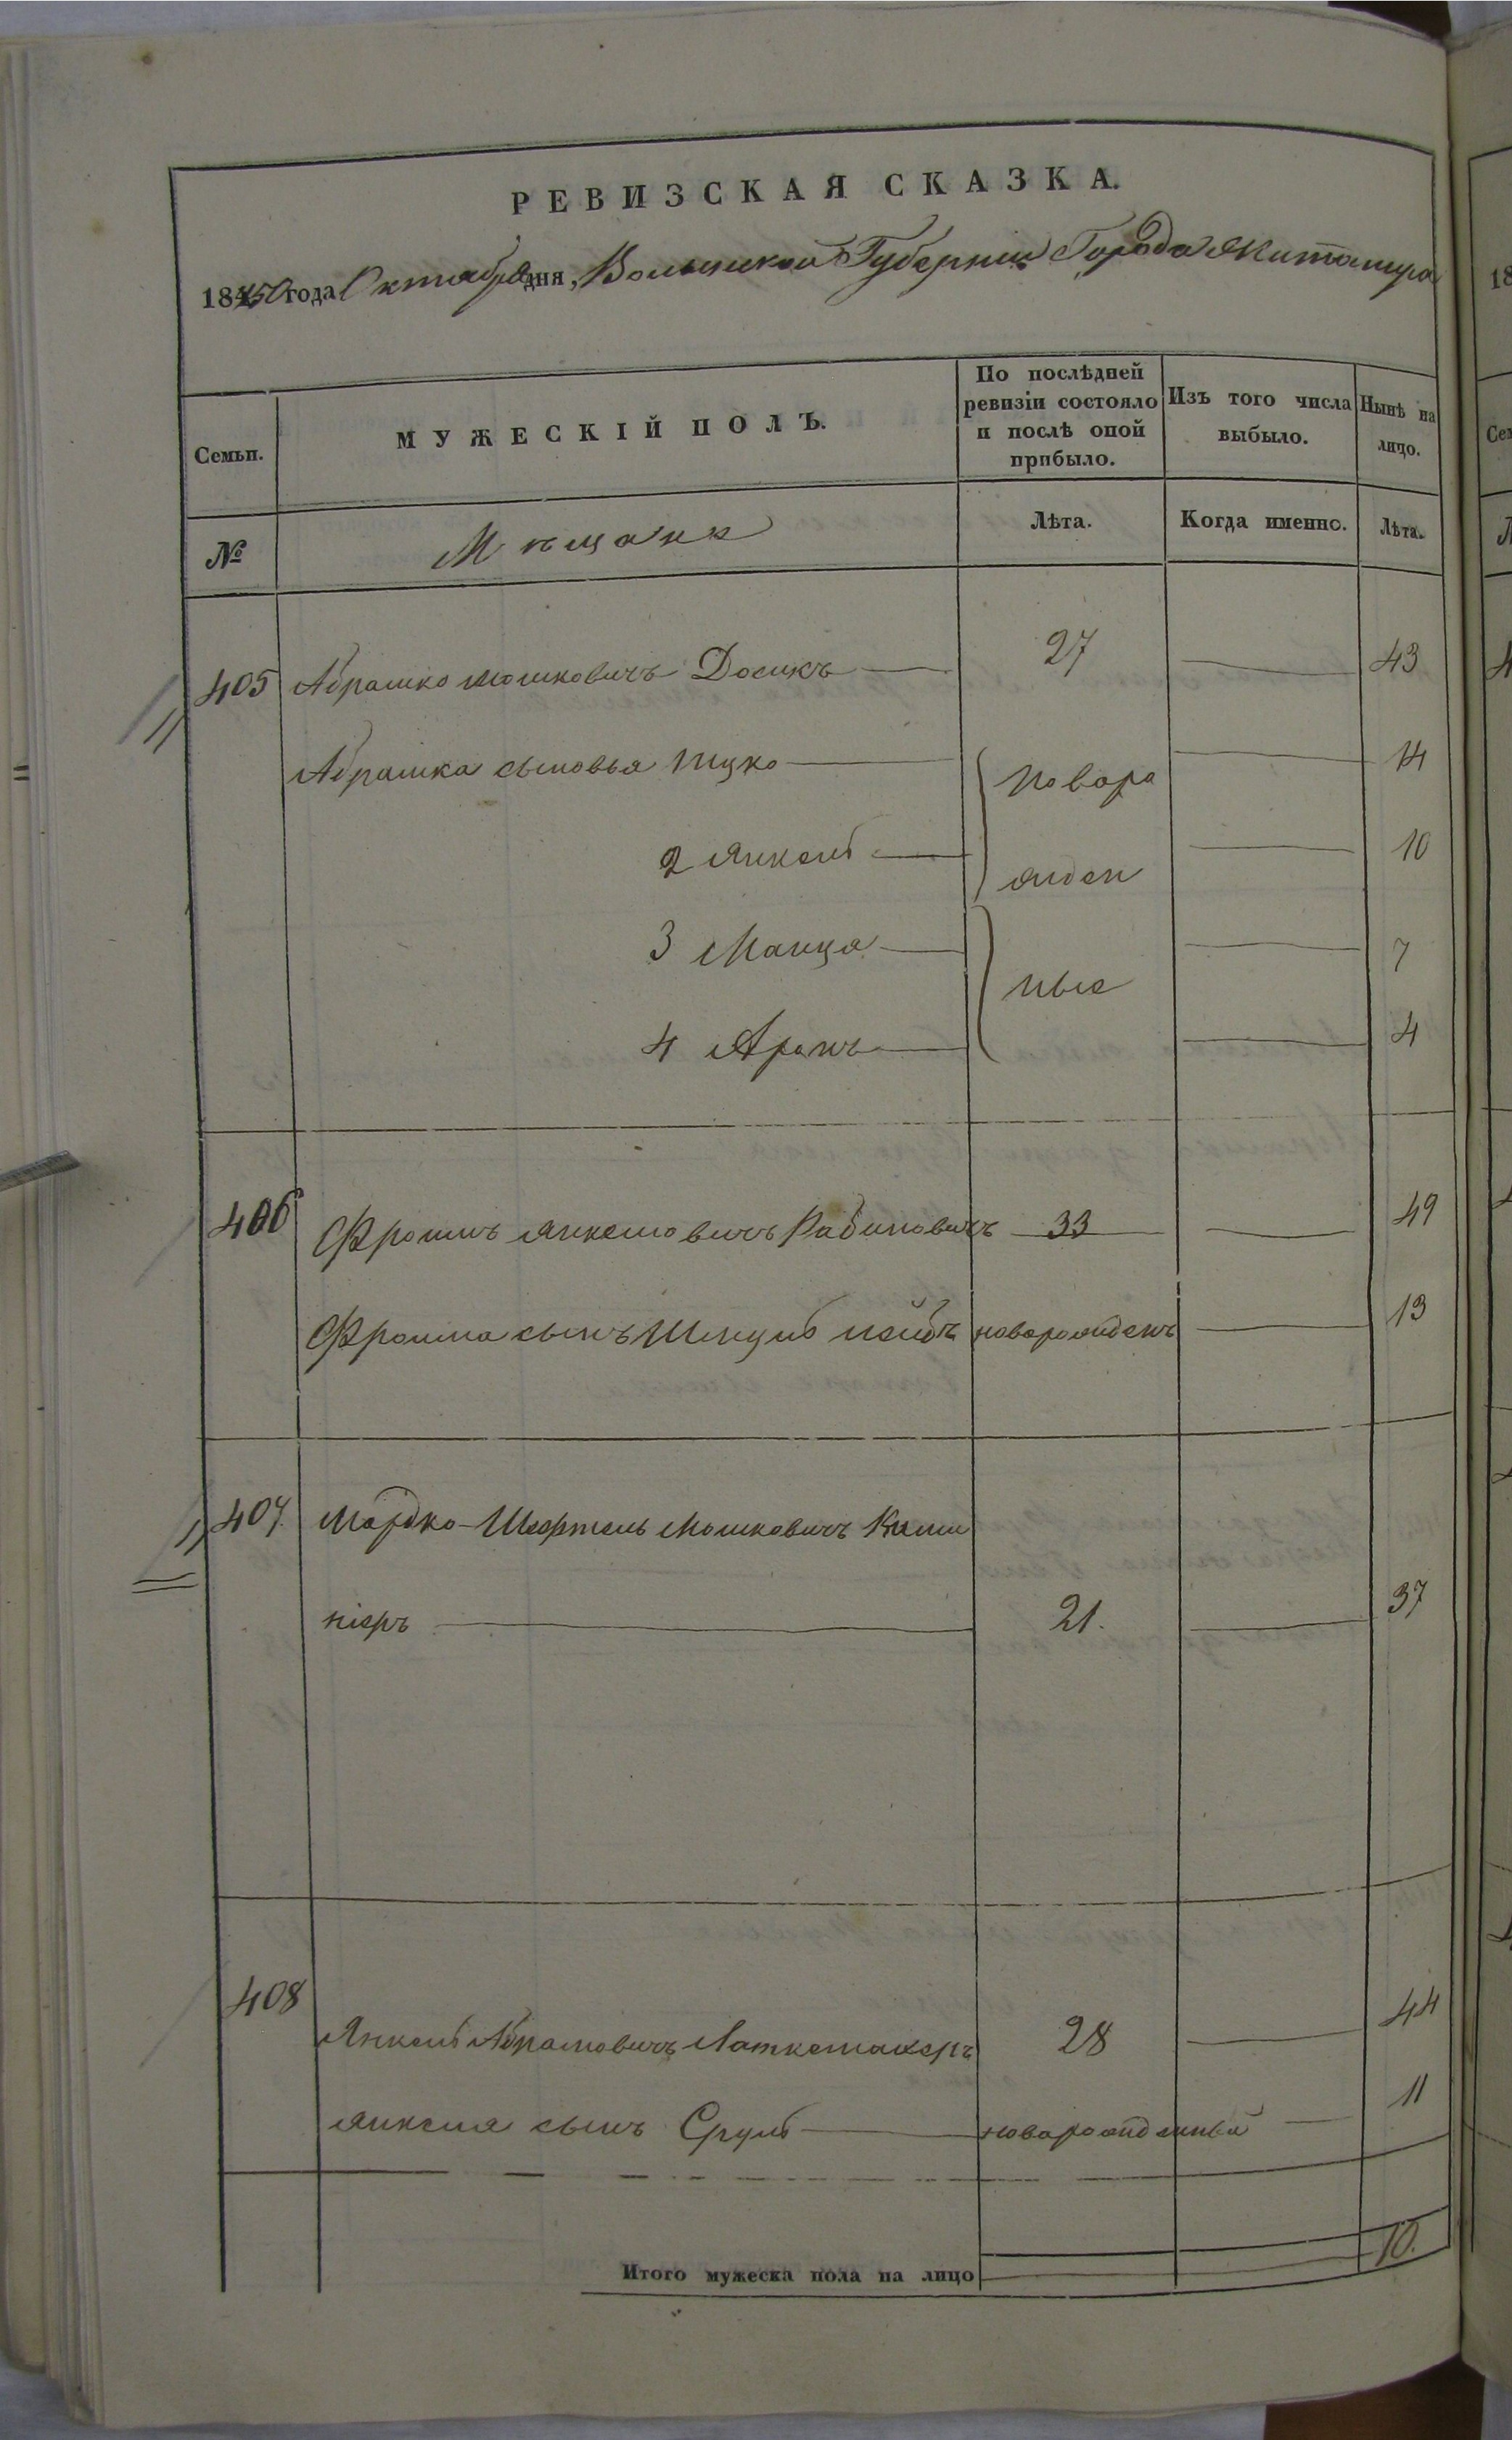 РЕВИЗСКАЯ СКАЗКА.
1850 года Октября дня, Волынской Губернии Города Житомира
Семьи.
МУЖЕСКІЙ ПОЛЪ.
По послѣдней ревизіи состояло и послѣ оной прибыло.
Изъ того числа выбыло.
Нынѣ на лицо.
№
Мѣщане
Лѣта.
Когда именно.
Лѣта.
405 Абрашко Мошковичъ Досикъ 27 43
Абрашка сыновья Ицко новоро 14
2 Янкель жден 10
3 Манца 7
ные
4 Аронъ 4
406 Фроимъ Янкелевичъ Рабиновичъ 33 49
Фроима сынъ Шмуль новорожденъ 13
407. Мордко-Шефтель Мошковичъ
ніеръ 21. 37
408
Янкель Абрамовичъ Латкемахеръ 28 44
Янкеля сынъ Сруль новорожденный 11
Итого мужеска пола на лицо 10.